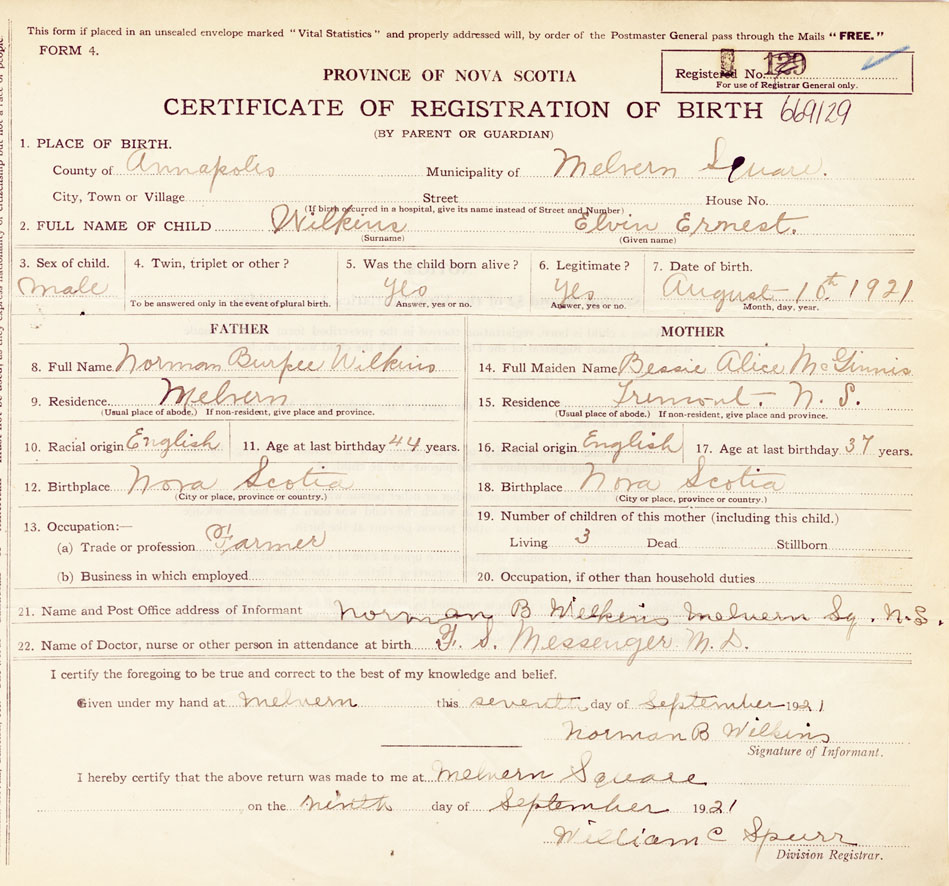 This form if placed in an unsealed envelope marked "Vital Statistics" and properly addressed will, by order of the Postmaster General pass through the Mails "FREE."
FORM 4.
PROVINCE OF NOVA SCOTIA
Registered No. 129
For use of Registrar General only.
CERTIFICATE OF REGISTRATION OF BIRTH 669129
(BY PARENT OR GUARDIAN)
1. PLACE OF BIRTH.
County of Annapolis Municipality of Melvern Square.
City, Town or Village Street House No.
(If birth occurred in a hospital, give its name instead of Street and Number)
2. FULL NAME OF CHILD Wilkins Elvin Ernest.
(Surname) (Given name)
3. Sex of child. 4. Twin, triplet or other? 5. Was the child born alive? 6. Legitimate? 7. Date of birth.
Male yes yes August 10th 1921
To be answered only in the event of plural birth. Answer, yes or no. Answer, yes or no. Month, day, year.
FATHER MOTHER
8. Full Name Norman Burpee Wilkins 14. Full Maiden Name Bessie Alice McGinnis
9. Residence Melvern 15. Residence Tremont, N. S.
(Usual place of abode.) If non-resident, give place and province. (Usual place of abode.) If non-resident, give place and province.
10. Racial origin English 11. Age at last birthday 44 years. 16. Racial origin English 17. Age at last birthday 37 years.
12. Birthplace Nova Scotia 18. Birthplace Nova Scotia
(City or place, province or country.) (City or place, province or country.)
13. Occupation:— 19. Number of children of this mother (including this child.)
(a) Trade or profession Farmer Living 3 Dead Stillborn
(b) Business in which employed 20. Occupation, if other than household duties
21. Name and Post Office address of Informant Norman B Wilkins Melvern Sq. N.S.
22. Name of Doctor, nurse or other person in attendance at birth F. S. Messenger M.D.
I certify the foregoing to be true and correct to the best of my knowledge and belief.
Given under my hand at Melvern this seventh day of September 1921
Norman B Wilkins
Signature of Informant.
I hereby certify that the above return was made to me at Melvern Square
on the ninth day of September 1921
William C Spurr
Division Registrar.